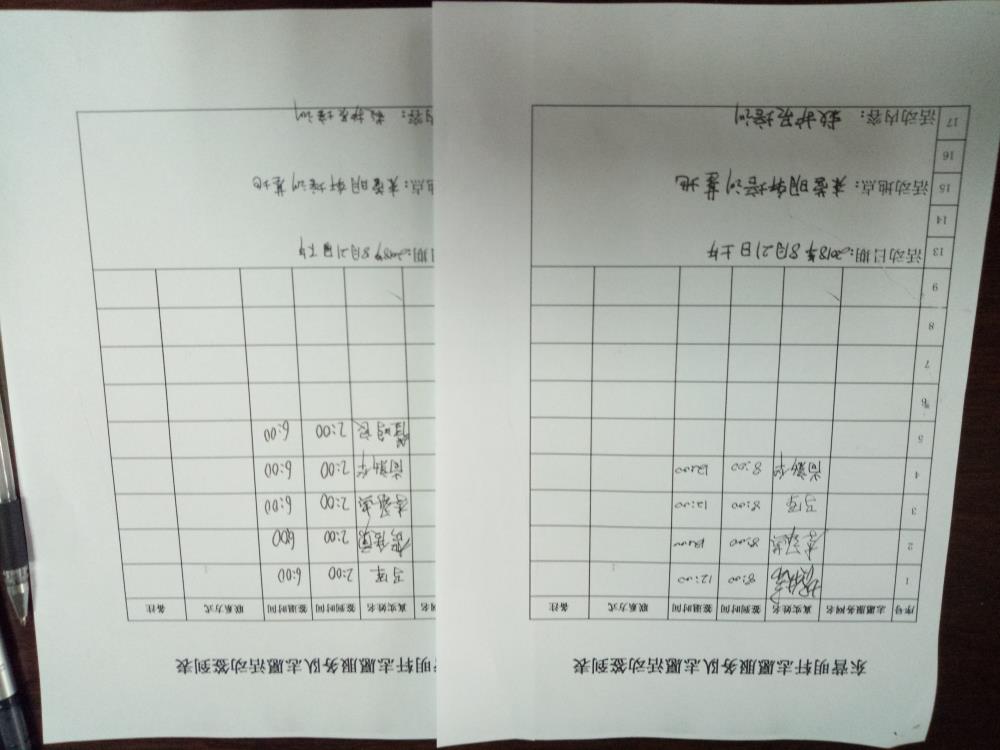 东营明轩志愿服务队志愿活动签到表
序号 志愿服务网名 真实姓名 签到时间 签退时间 联系方式 备注
1 8:00 12:00
2 8:00 12:00
3 马军 8:00 12:00
4 尚新华 8:00 12:00
5
6
7
8
9
13 活动日期：2018年8月21日上午
14
15 活动地点：东营明轩培训基地
16
17 活动内容：救护员培训
营明轩志愿服务队志愿活动签到表
网名 真实姓名 签到时间 签退时间 联系方式 备注
马军 2:00 6:00
2:00 600
2:00 6:00
尚新华 2:00 6:00
2:00 6:00
日期：2018年8月21日下午
地点：东营明轩培训基地
内容：救护员培训